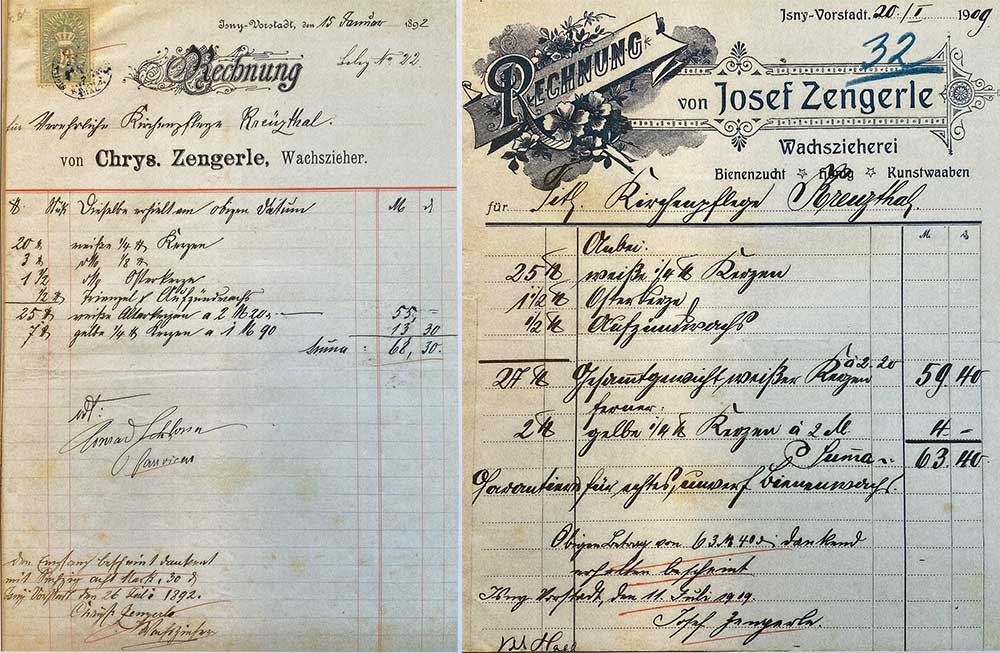 Isny-Vorstadt, den 15 Januar 1892
Rechnung
Beleg No 22
für Verehrliche Kirchenpflege Kreuzthal.
von Chrys. Zengerle, Wachszieher.
Dieselbe erhielt am obigen Datum M d
20 ℔ weiße 1/4 ℔ Kerzen
3 ℔ 1/8 ℔
1 1/2 Osterkerze
1/2 ℔ Aufzündwachs
25 ℔ weiße Alterkerzen a 2 M 20 55,-
7 ℔ gelbe 1/4 ℔ Kerzen a 1 M 90 13 30
Suma: 68, 30.
Den Empfang bescheint dankend
mit Sechzig acht Mark, 30 d
Isny Vorstadt den 26 Juli 1892.
Chrys. Zengerle
Wachszieher
Isny-Vorstadt, 20/I 1909
32
Rechnung
von Josef Zengerle
Wachszieherei
Bienenzucht ☆ Honig ☆ Kunstwaben
für Kirchenpflege Kreuzthal
M. d.
Anbei:
25 ℔ weiße 1/4 ℔ Kerzen
1 1/2 ℔ Osterkerze
1/2 ℔ Aufzündwachs
à 2.20
27 ℔ Gesamtgewicht weißer Kerzen 59 40
ferner:
2 ℔ gelbe 1/4 ℔ Kerzen à 2 M 4 -
Suma: 63.40.
Garantiere für echtes, Bienenwachs.
Obigen Betrag von 63 M 40 d dankend
erhalten bescheint
Isny Vorstadt, den 11. Juli 1909.
Josef Zengerle.